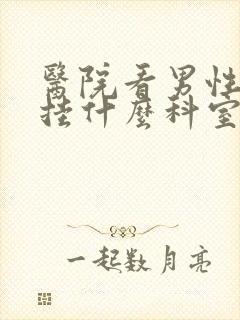 醫院看男性
挂什麼科室
一起数月亮